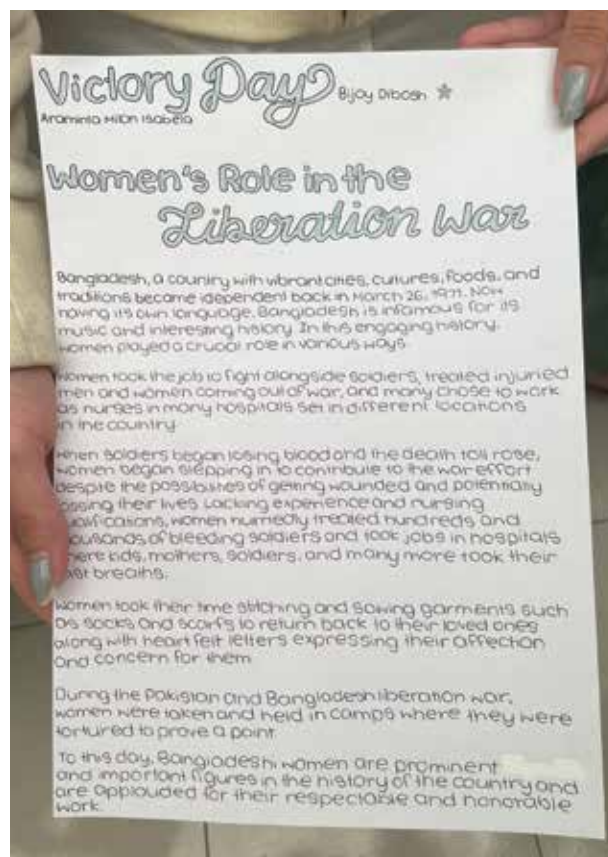 Victory Day Bijoy Dibosh
Araminta Milon Isabela
Women's Role in the
Liberation War
Bangladesh, a country with vibrant cities, cultures, foods, and
traditions became idependent back in March 26, 1971. Now
having its own language, Bangladesh is infamous for its
music and interesting history. In this engaging history,
women played a crucial role in various ways.
Women took the job to fight alongside soldiers, treated injuried
men and women coming out of war, and many chose to work
as nurses in many hospitals set in different locations
in the country.
When soldiers began losing blood and the death toll rose,
women began stepping in to contribute to the war effort
despite the possibilities of getting wounded and potentially
lossing their lives. Lacking experience and nursing
qualifications, women numedly treated hundreds and
thousands of bleeding soldiers and took jobs in hospitals
where kids, mothers, soldiers, and many more took their
last breaths.
Women took their time stitching and sowing garments such
as socks and scarfs to return back to their loved ones
along with heart felt letters expressing their affection
and concern for them.
During the Pakistan and Bangladesh liberation war,
women were taken and held in camps where they were
tortured to prove a point.
To this day, Bangladeshi women are prominent
and important figures in the history of the country and
are applauded for their respectable and honorable
work.